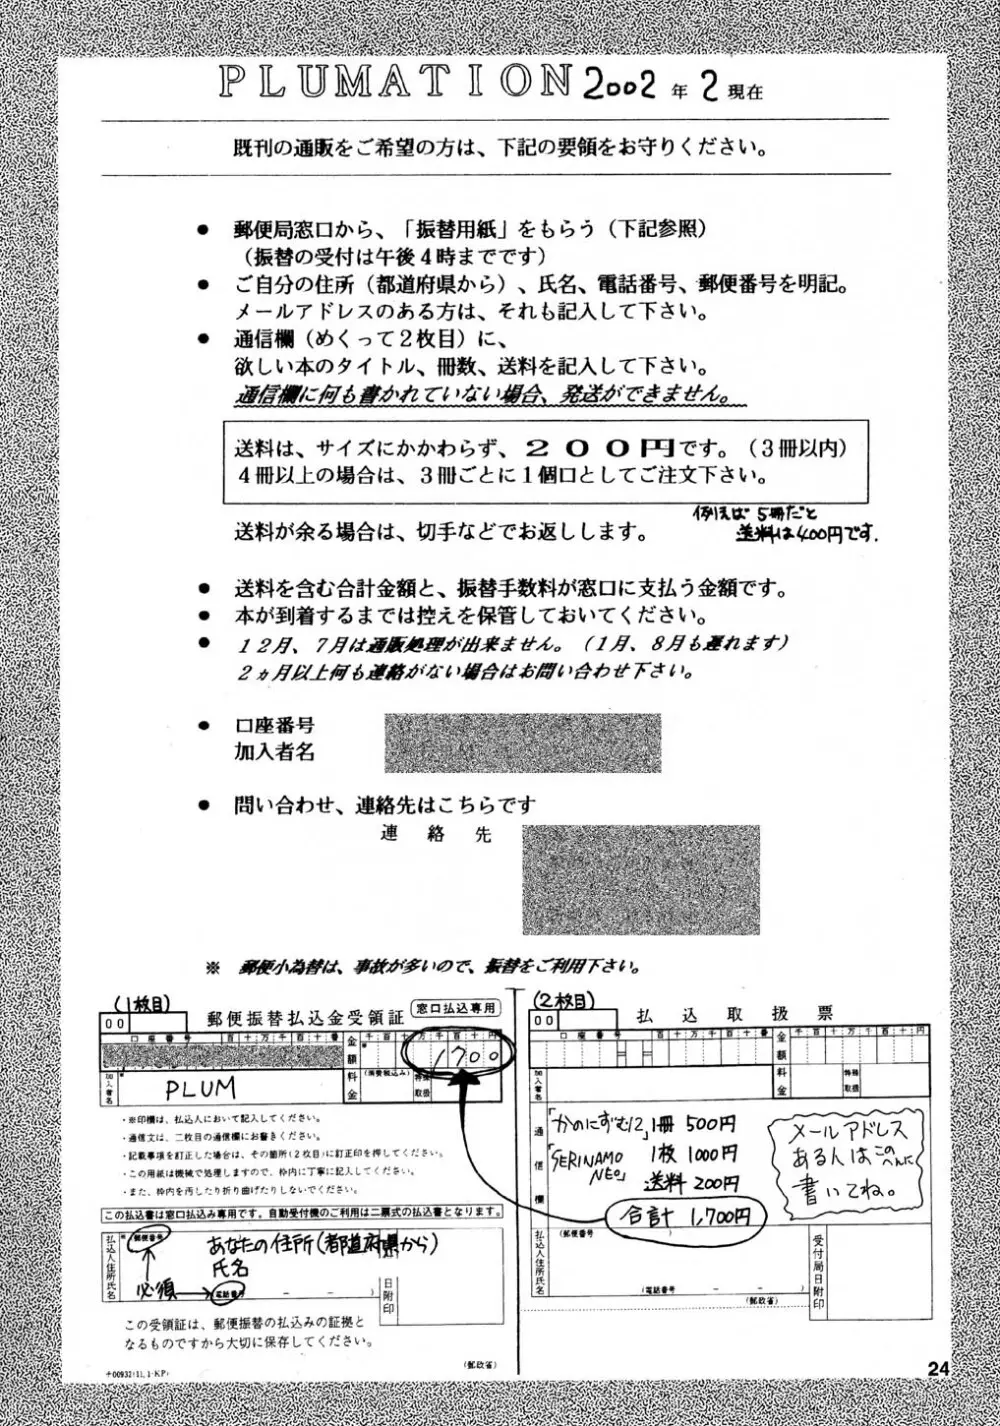 PLUMATION 2002年2現在
既刊の通販をご希望の方は、下記の要領をお守りください。
● 郵便局窓口から、「振替用紙」をもらう（下記参照）
（振替の受付は午後４時までです）
● ご自分の住所（都道府県から）、氏名、電話番号、郵便番号を明記。
メールアドレスのある方は、それも記入して下さい。
● 通信欄（めくって２枚目）に、
欲しい本のタイトル、冊数、送料を記入して下さい。
通信欄に何も書かれていない場合、発送ができません。
送料は、サイズにかかわらず、２００円です。（３冊以内）
４冊以上の場合は、３冊ごとに１個口としてご注文下さい。
例えば 5冊だと
送料は400円です.
送料が余る場合は、切手などでお返しします。
● 送料を含む合計金額と、振替手数料が窓口に支払う金額です。
● 本が到着するまでは控えを保管しておいてください。
● １２月、７月は通販処理が出来ません。（１月、８月も遅れます）
２ヵ月以上何も連絡がない場合はお問い合わせ下さい。
● 口座番号
加入者名
● 問い合わせ、連絡先はこちらです
連 絡 先
※ 郵便小為替は、事故が多いので、振替をご利用下さい。
(1枚目)
00
郵便振替払込金受領証
窓口払込専用
口座番号
百十万千百十番
金額
千百十万千百十円
1700
加入者名
PLUM
料金
(消費税込み)
特殊取扱
・※印欄は、払込人において記入してください。
・通信文は、二枚目の通信欄にお書きください。
・記載事項を訂正した場合は、その箇所(２枚目)に訂正印を押してください。
・この用紙は機械で処理しますので、枠内に丁寧に記入してください。
・また、枠内を汚したり折り曲げたりしないでください。
この払込書は窓口払込み専用です。自動受付機のご利用は二票式の払込書となります。
払込人住所氏名
郵便番号
あなたの住所(都道府県から)
氏名
必須
電話番号
日附印
この受領証は、郵便振替の払込みの証拠と
なるものですから大切に保存してください。
(郵政省)
(2枚目)
00
払込取扱票
口座番号
百十万千百十番
金額
千百十万千百十円
加入者名
料金
特殊取扱
通信欄
「かのにずむ12」1冊 500円
「SERINAMO NEO」 1枚 1000円
送料 200円
合計 1,700円
メールアドレス
ある人はこのへんに
書いてね。
払込人住所氏名
(郵便番号 )
(電話番号 － － )
(郵政省)
受付局日附印
24